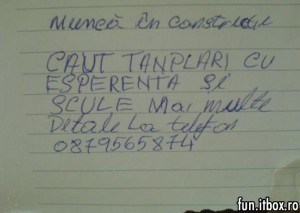 Muncă în construcție
CAUT TANPLARI CU
ESPERENTA ȘI
SCULE Mai multe
Detale La telefon
0879565874
fun.itbox.ro